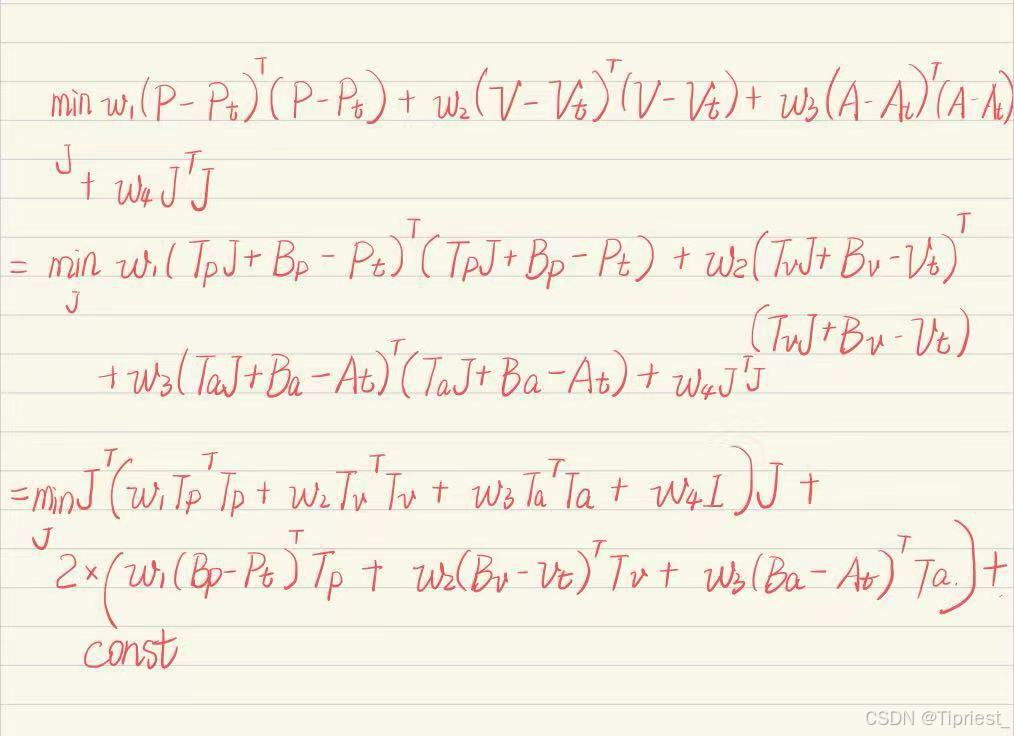 min w₁(P - Pt)ᵀ(P - Pt) + w₂(V - Vt)ᵀ(V - Vt) + w₃(A - At)ᵀ(A - At)
J + w₄JᵀJ
= min w₁(TpJ + Bp - Pt)ᵀ(TpJ + Bp - Pt) + w₂(TvJ + Bv - Vt)ᵀ
J
(TvJ + Bv - Vt)
+ w₃(TaJ + Ba - At)ᵀ(TaJ + Ba - At) + w₄JᵀJ
= min Jᵀ(w₁TpᵀTp + w₂TvᵀTv + w₃TaᵀTa + w₄I)J +
J
2×(w₁(Bp - Pt)ᵀTp + w₂(Bv - Vt)ᵀTv + w₃(Ba - At)ᵀTa.) +
const
CSDN @Tipriest_